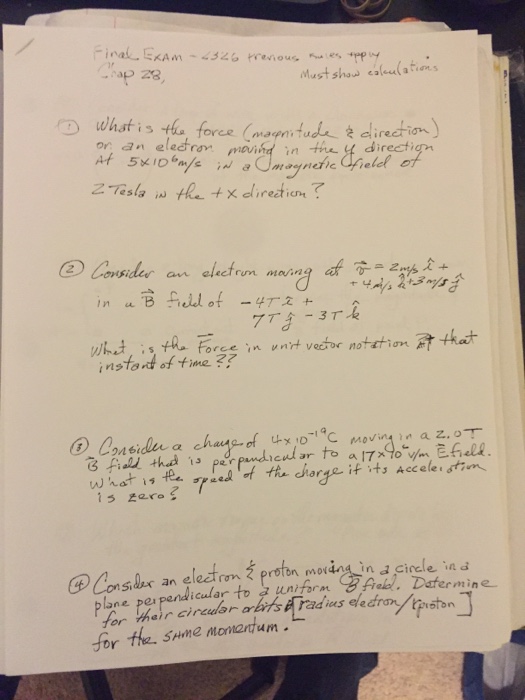 Final EXAM - 2326 Previous Rules Apply
Chap 28,
Must show calculations
① What is the force (magnitude & direction)
on an electron moving in the y direction
At 5x10⁶m/s in a magnetic field of
2 Tesla in the +x direction?
② Consider an electron moving at v⃗ = 2m/s î +
+ 4m/s k̂ +3m/s ĵ
in a B⃗ field of -4T î +
7T ĵ - 3T k̂
What is the Force in unit vector notation at that
instant of time??
③ Consider a charge of 4x10⁻¹⁹C moving in a 2.0T
B⃗ field that is perpendicular to a 17x10 V/m E⃗ field.
What is the speed of the charge if its Acceleration
is zero?
④ Consider an electron & proton moving in a circle in a
plane perpendicular to a uniform B⃗ field. Determine
for their circular orbits [radius electron/rproton]
for the SAME momentum.